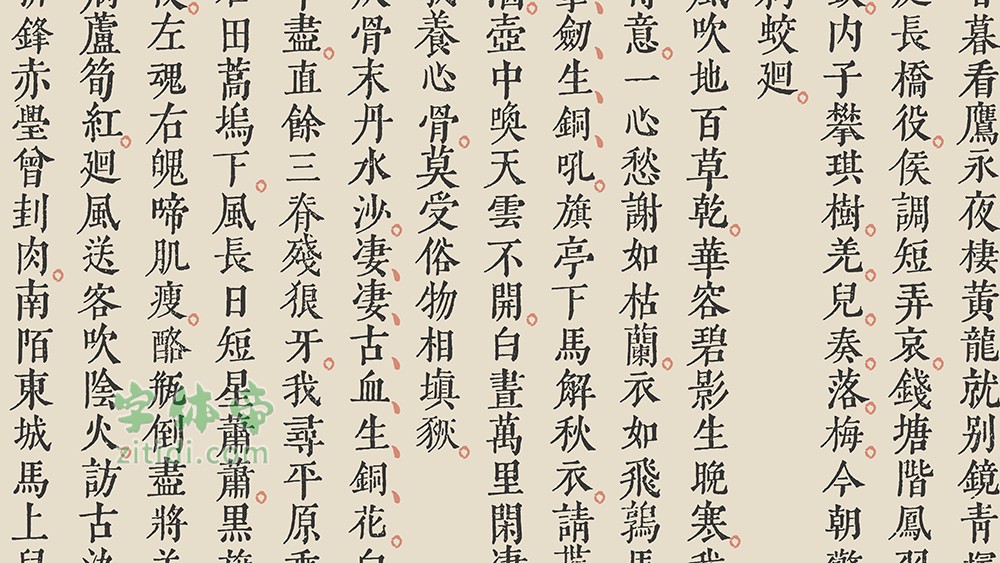 暮看鷹永夜棲黃龍就別鏡青
長橋役。侯調短弄哀。錢塘階鳳羽
內子攀琪樹。羌兒。奏。落。梅。今朝擎
蛟廻。
風吹地百草乾。華容碧影生晚寒。我
意。一心愁謝如枯蘭。衣如飛鶉馬
劒、生、銅、吼。旗亭下馬解秋衣。請貰
壺中喚天雲不開。白晝萬里閑凄
我養心骨。莫受俗物相填豗。
骨末丹水沙。凄、凄、古、血、生、銅、花。白
盡。直餘三脊殘狼牙。我尋平原乘
田蒿塢下。風長日短星蕭蕭。黑旗
左魂右魄啼肌瘦。酪缾倒盡將羊
蘆筍紅。廻風送客吹陰火。訪古
鋒赤璺曾刲肉。南陌東城馬上兒
字体帝
zitidi.com